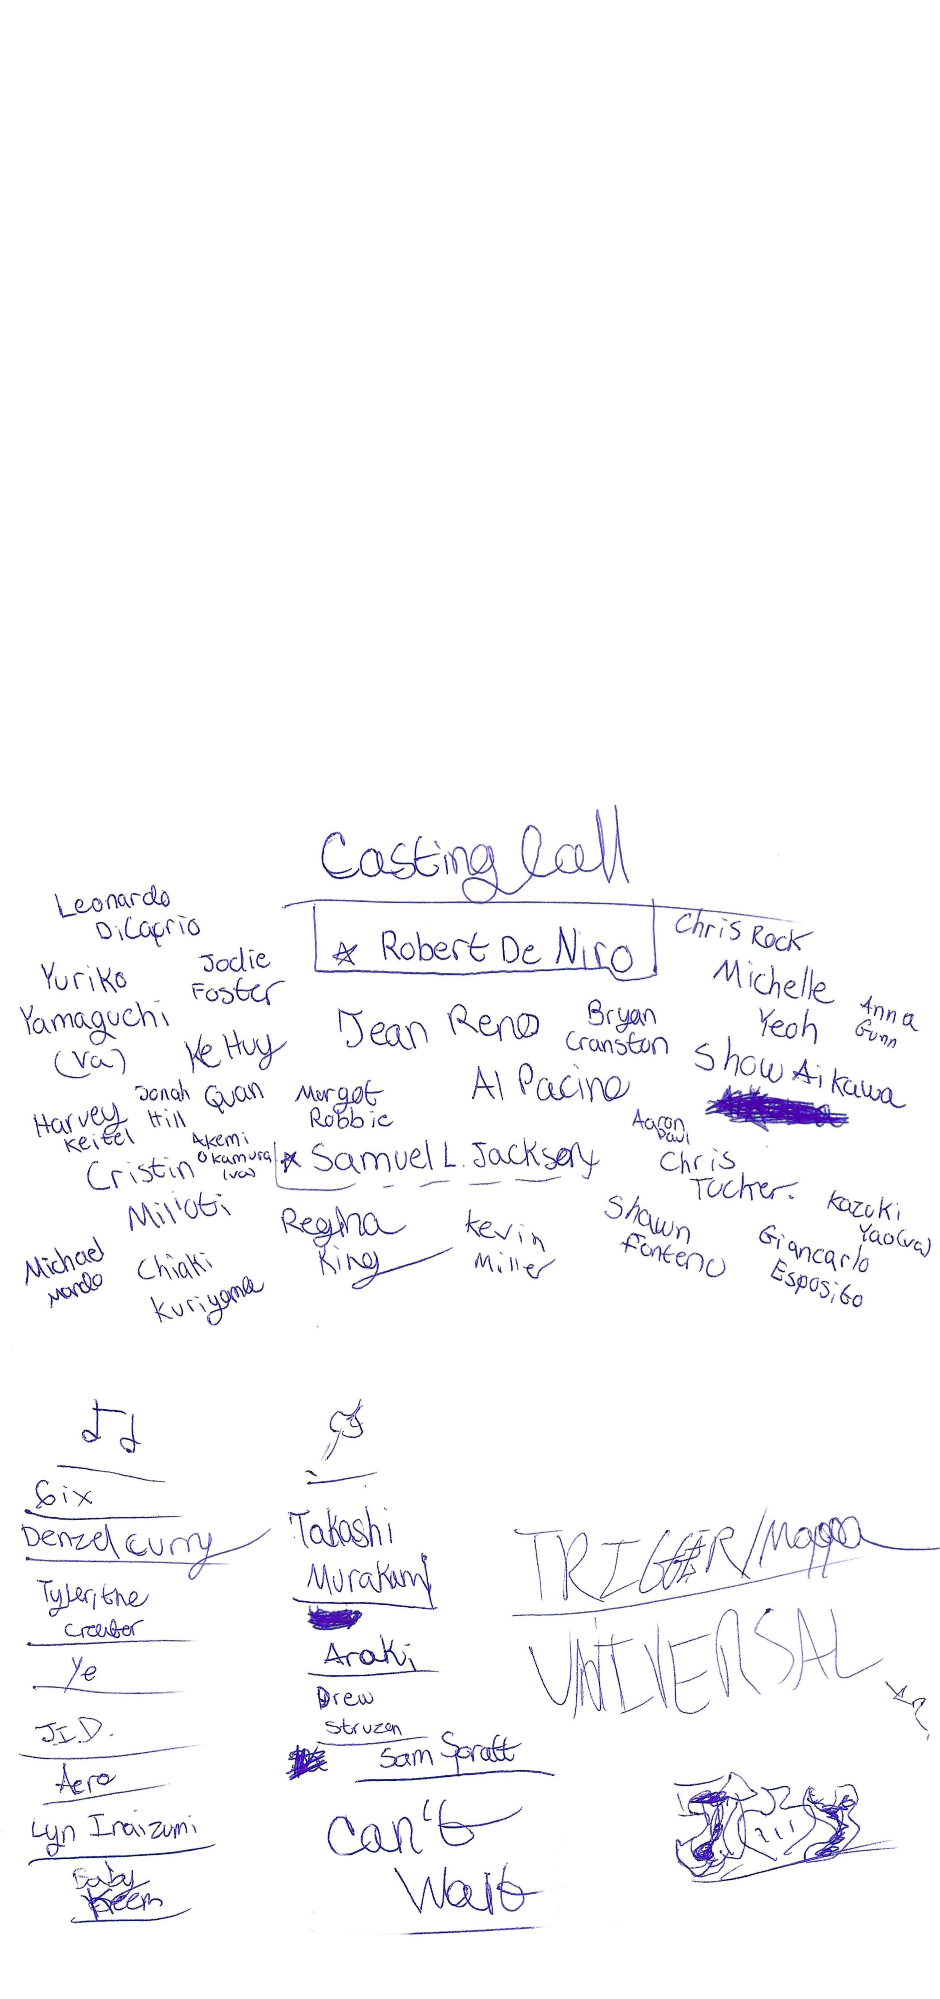 Casting Call
Leonardo
DiCaprio
Robert De Niro
Chris Rock
Yuriko
Yamaguchi
(va)
Jodie
Foster
Michelle
Yeoh
Anna
Gunn
Ke Huy
Quan
Jean Reno
Bryan
Cranston
Show Aikawa
Al Pacino
Jonah
Hill
Margot
Robbie
Harvey
Keitel
Akemi
Okamura
(va)
Aaron
Paul
Cristin
Milioti
Samuel L. Jackson
Chris
Tucker.
Regina
King
Kevin
Miller
Shawn
Fonteno
Kazuki
Yao(va)
Giancarlo
Esposito
Michael
Mando
Chiaki
Kuriyama
6ix
Denzel Curry
Tyler, the
Creator
Ye
J.I.D.
Aero
Lyn Inaizumi
Baby
Keem
Takashi
Murakami
Araki
Drew
Struzan
Sam Spratt
Can't
Wait
TRIGGER/Mappa
UNIVERSAL